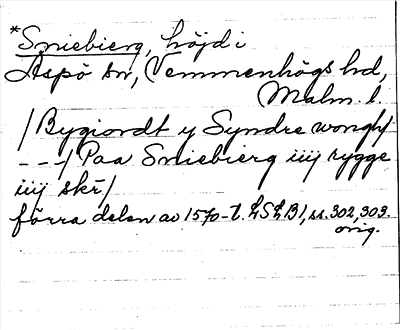 *Sniebierg, höjd i
Aspö sn, Vemmenhögs hd,
Malm. l.
/Bygiordt y Syndre wongh/
---/Paa Sniebierg iiij rygge
iiij skr/
förra delen av 1570-t. LSLB1, ss. 302, 303.
orig.